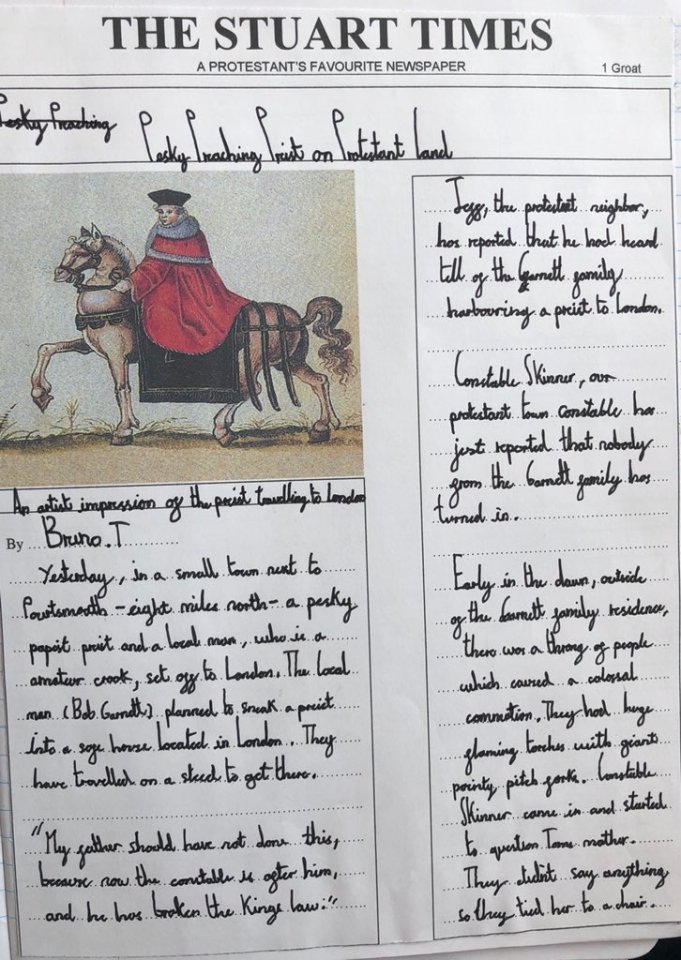 THE STUART TIMES
A PROTESTANT'S FAVOURITE NEWSPAPER
1 Groat
Pesky Preaching
Pesky Preaching Priest on Protestant land
An artist impression of the preist travelling to London
By Bruno.T
Yesterday, in a small town next to
Powtsmouth - eight miles north - a pesky
papist preist and a local man, who is a
amateur crook, set off to London. The local
man (Bob Garnett) planned to sneak a preist
into a safe house located in London. They
have travelled on a steed to get there.
"My father should have not done this,
because now the constable is after him,
and he has broken the Kings law."
Jezz, the protestant neighbor,
has reported that he had heard
tell of the Garnett family
harbouring a preist to London.
Constable Skinner, our
protestant town constable has
just reported that nobody
from the Garnett family has
turned in.
Early in the dawn, outside
of the Garnett family residence,
there was a throng of people
which caused a colossal
commotion. They had huge
flaming torches with giant
pointy pitch forks. Constable
Skinner came in and started
to question Toms mother.
They didn't say anything
so they tied her to a chair.